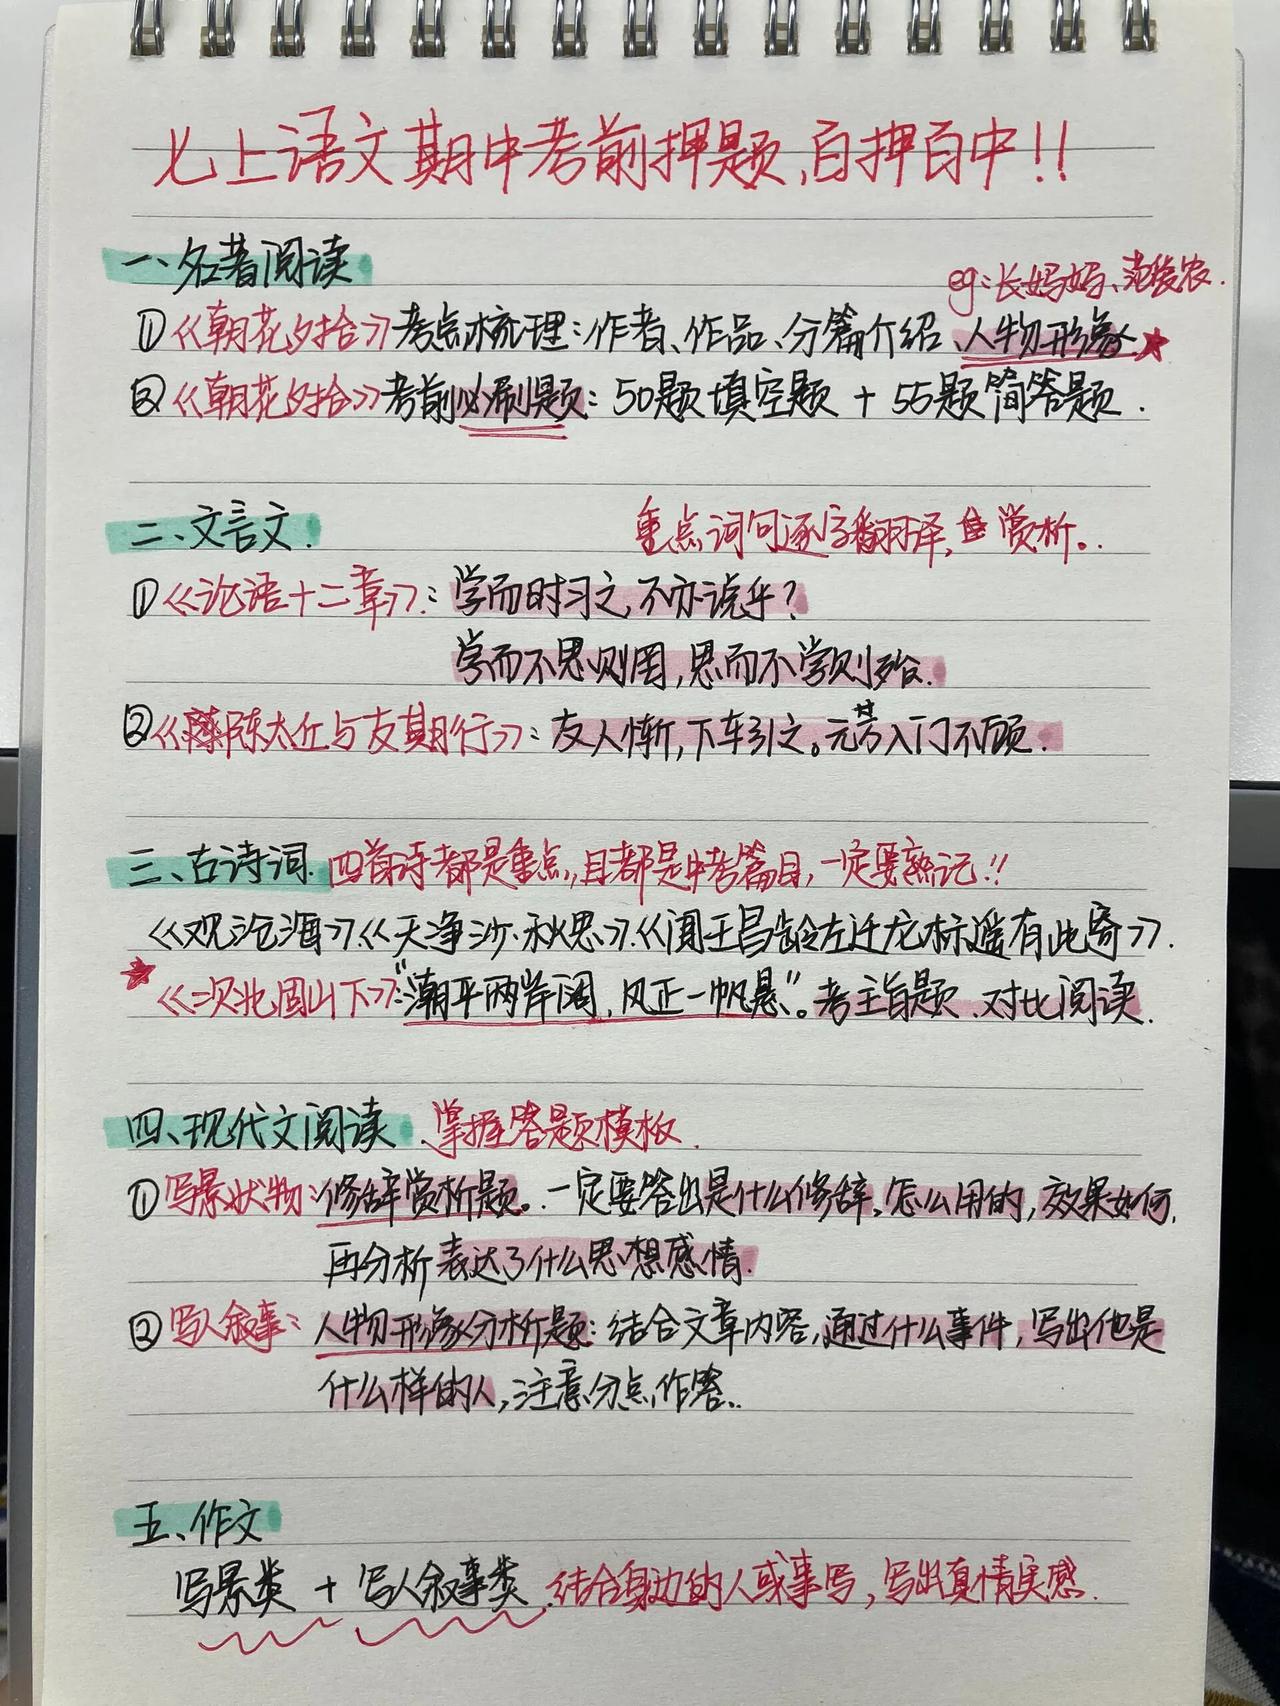 七上语文期中考前押题,百押百中!!
一、名著阅读
eg:长妈妈、范爱农.
①《朝花夕拾》考点梳理:作者、作品、分篇介绍、人物形象
②《朝花夕拾》考前必刷题:50题填空题+55题简答题.
二、文言文.
重点词句逐字翻译,赏析。
①《论语十二章》:学而时习之,不亦说乎?
学而不思则罔,思而不学则殆.
②《陈太丘与友期行》:友人惭,下车引之。元方入门不顾.
三、古诗词.四首诗都是重点,且都是中考篇目,一定要熟记!!
《观沧海》.《天净沙·秋思》.《闻王昌龄左迁龙标遥有此寄》.
《次北固山下》:"潮平两岸阔,风正一帆悬"。考主旨题、对比阅读.
四、现代文阅读、掌握答题模板.
①写景状物:修辞赏析题。一定要答出是什么修辞,怎么用的,效果如何,
再分析表达了什么思想感情.
②写人叙事:人物形象分析题:结合文章内容,通过什么事件,写出他是
什么样的人,注意分点作答.
五、作文
写景类+写人叙事类.结合身边的人或事写,写出真情实感.